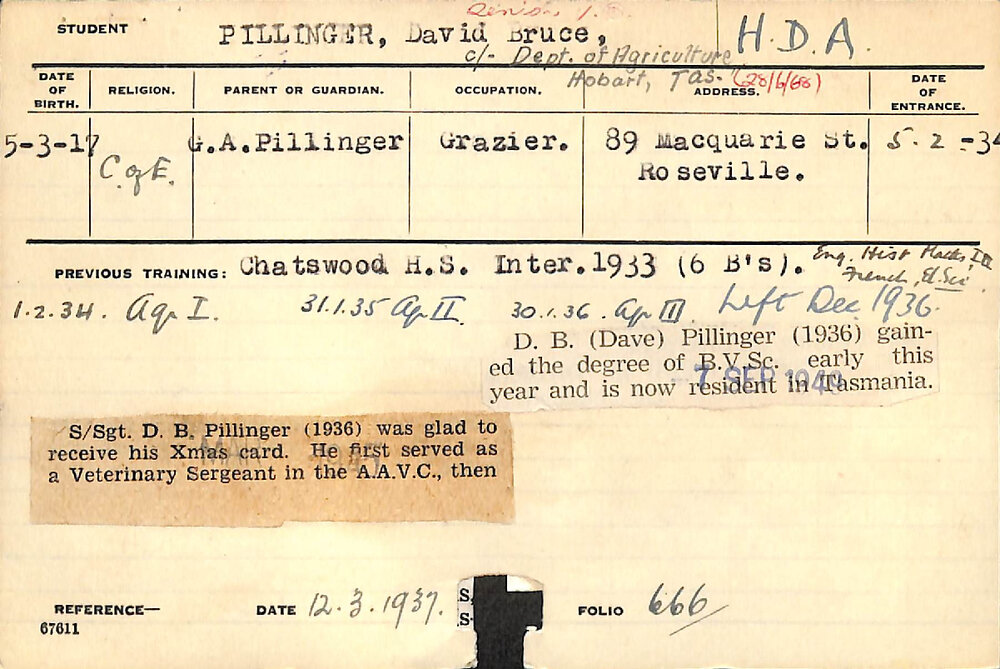 STUDENT PILLINGER, David Bruce, H.D.A.
c/- Dept. of Agriculture
Hobart, Tas. (28/6/68)
DATE OF BIRTH. RELIGION. PARENT OR GUARDIAN. OCCUPATION. ADDRESS. DATE OF ENTRANCE.
5-3-17 C. of E. G.A.Pillinger Grazier. 89 Macquarie St. 5.2-34
Roseville.
PREVIOUS TRAINING: Chatswood H.S. Inter.1933 (6 B's). Eng. Hist Maths I, II
French, El. Sci.
1.2.34. Ag I. 31.1.35 Ag II. 30.1.36. Ag III. Left Dec 1936.
D. B. (Dave) Pillinger (1936) gain-
ed the degree of B.V.Sc. early this
year and is now resident in Tasmania.
7 SEP 1949
S/Sgt. D. B. Pillinger (1936) was glad to
receive his Xmas card. He first served as
a Veterinary Sergeant in the A.A.V.C., then
MAR
REFERENCE— DATE 12.3.1937. S.
S- FOLIO 666
67611